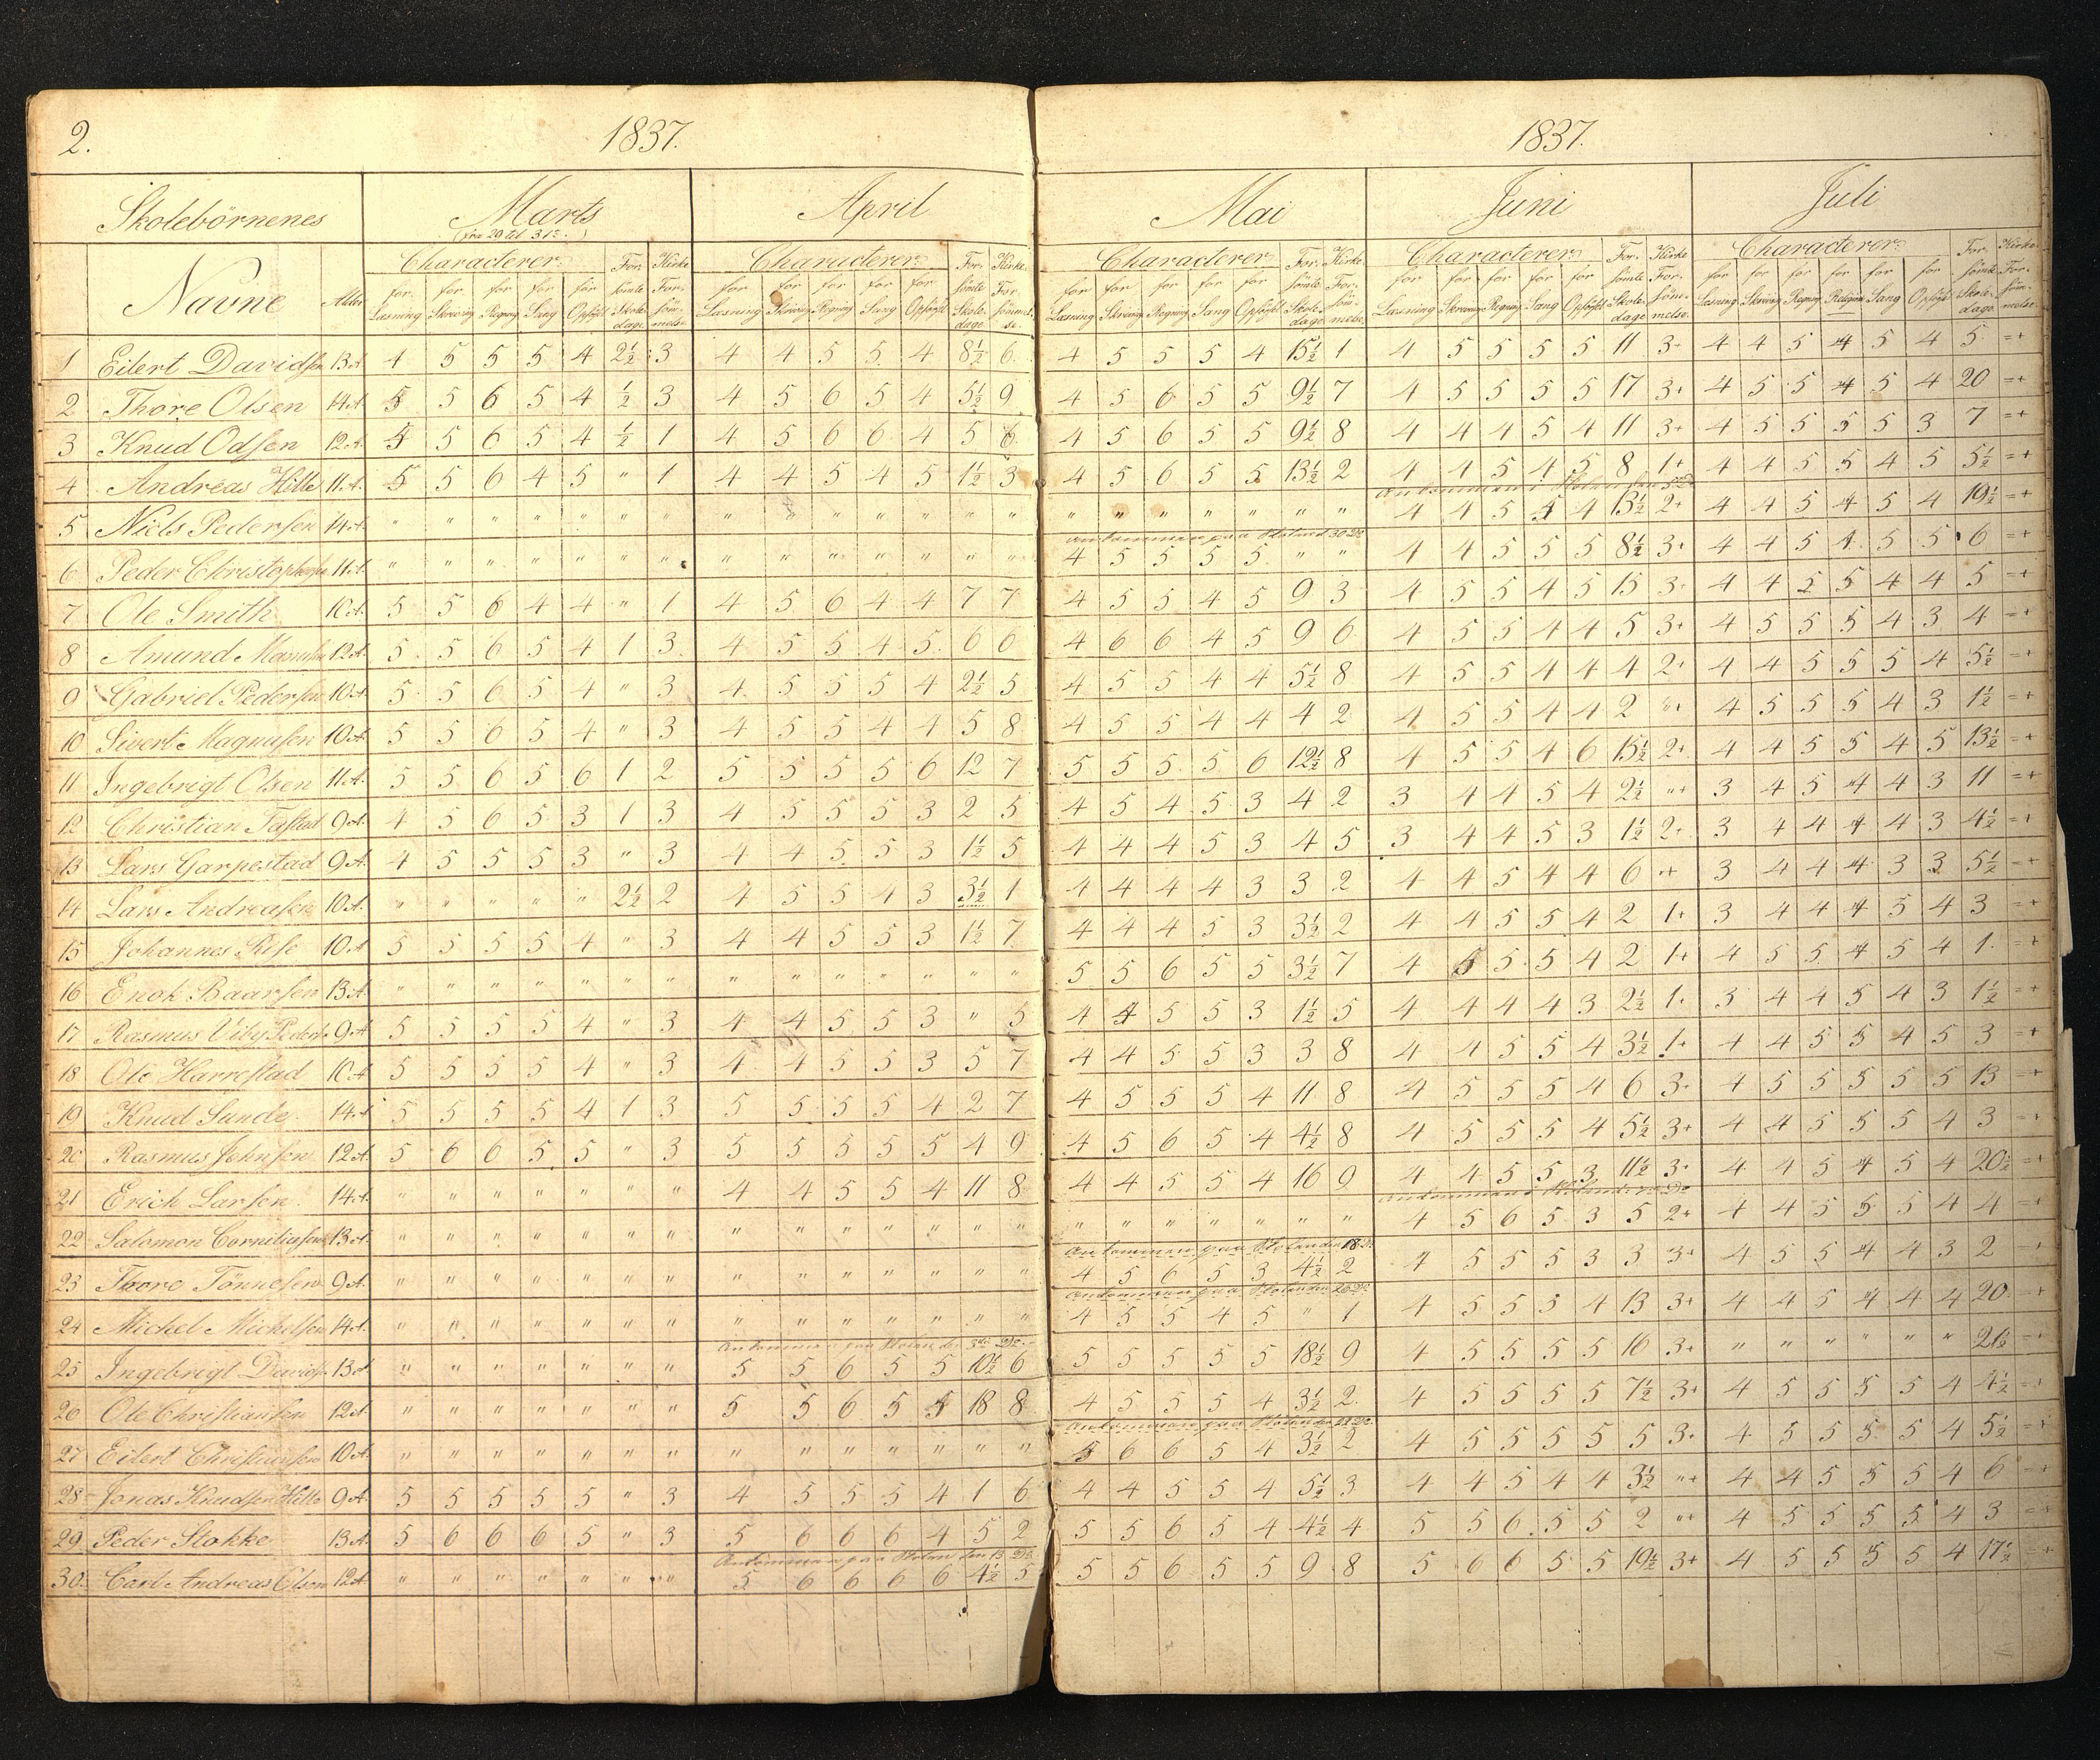 2. 1837. 1837.
Skolebörnenes Marts April Mai Juni Juli
(fra 20 til 31te.)
Navne Alder Characterer Forsömte Skoledage Kirke Forsömmelse Characterer Forsömte Skoledage Kirke Forsömmelse Characterer Forsömte Skoledage Kirke Forsömmelse Characterer Forsömte Skoledage Kirke Forsömmelse Characterer Forsömte Skoledage Kirke Forsömmelse
for Læsning for Skrivning for Regning for Sang for Opførsel for Læsning for Skrivning for Regning for Sang for Opførsel for Læsning for Skrivning for Regning for Sang for Opførsel for Læsning for Skrivning for Regning for Sang for Opførsel for Læsning for Skrivning for Regning for Religion for Sang for Opførsel
1 Eilert Davidsen 13 A. 4 5 5 5 4 2½ 3 4 4 5 5 4 8½ 6 4 5 5 5 4 15½ 1 4 5 5 5 5 11 3+ 4 4 5 4 5 4 5 =+
2 Thore Olsen 14 A. 5 5 6 5 4 ½ 3 4 5 6 5 4 5½ 9 4 5 6 5 5 9½ 7 4 5 5 5 5 17 3+ 4 5 5 4 5 4 20 =+
3 Knud Odsen 12 A. 5 5 6 5 4 ½ 1 4 5 6 6 4 5 6 4 5 6 5 5 9½ 8 4 4 4 5 4 11 3+ 4 5 5 5 5 3 7 =+
4 Andreas Hille 11 A. 5 5 6 4 5 " 1 4 4 5 4 5 1½ 3 4 5 6 5 5 13½ 2 4 4 5 4 5 8 1+ 4 4 5 5 4 5 5½ =+
Ankommen i Skolen den
5 Niels Pedersen 14 A. " " " " " " " " " " " " " " " " " " " " " 4 4 5 4 4 13½ 2+ 4 4 5 4 5 4 19½ =+
Ankommen paa Skolen d 30 De
6 Peder Christophersen 11 A. " " " " " " " " " " " " " " 4 5 5 5 5 " " 4 4 5 5 5 8½ 3+ 4 4 5 4 5 5 6 =+
7 Ole Smith 10 A. 5 5 6 4 4 " 1 4 5 6 4 4 7 7 4 5 5 4 5 9 3 4 5 5 4 5 15 3+ 4 4 5 5 4 4 5 =+
8 Amund 12 A. 5 5 6 5 4 1 3 4 5 5 4 5 6 6 4 6 6 4 5 9 6 4 5 5 4 4 5 3+ 4 5 5 5 4 3 4 =+
9 Gabriel Pedersen 10 A. 5 5 6 5 4 " 3 4 5 5 5 4 2½ 5 4 5 5 4 4 5½ 8 4 5 5 4 4 4 2+ 4 4 5 5 5 4 5½ =+
10 Sivert Magnusen 10 A. 5 5 6 5 4 " 3 4 5 5 4 4 5 8 4 5 5 4 4 4 2 4 5 5 4 4 2 "+ 4 5 5 5 4 3 1½ =+
11 Ingebrigt Olsen 11 A. 5 5 6 5 6 1 2 5 5 5 5 6 12 7 5 5 5 5 6 12½ 8 4 5 5 4 6 15½ 2+ 4 4 5 5 4 5 13½ =+
12 Christian Tastad 9 A. 4 5 6 5 3 1 3 4 5 5 5 3 2 5 4 5 4 5 3 4 2 3 4 4 5 4 2½ "+ 3 4 5 4 4 3 11 =+
13 Lars Garpestad 9 A. 4 5 5 5 3 " 3 4 4 5 5 3 1½ 5 4 4 4 5 3 4 5 3 4 4 5 3 1½ 2+ 3 4 4 4 4 3 4½ =+
14 Lars Andreasen 10 A. " " " " " 2½ 2 4 5 5 4 3 3½ 1 4 4 4 4 3 3 2 4 4 5 4 4 6 "+ 3 4 4 4 3 3 5½ =+
15 Johannes Rise 10 A. 5 5 5 5 4 " 3 4 4 5 5 3 1½ 7 4 4 4 5 3 3½ 2 4 4 5 5 4 2 1+ 3 4 4 4 5 4 3 =+
16 Enok Baarsen 13 A. " " " " " " " " " " " " " " 5 5 6 5 5 3½ 7 4 5 5 5 4 2 1+ 4 5 5 4 5 4 1 =+
17 Rasmus Viby Peders. 9 A. 5 5 5 5 4 " 3 4 4 5 5 3 " 5 4 4 5 5 3 1½ 5 4 4 4 4 3 2½ 1+ 3 4 4 5 4 3 1½ =+
18 Ole Harrestad 10 A. 5 5 5 5 4 " 3 4 4 5 5 3 5 7 4 4 5 5 3 3 8 4 4 5 5 4 3½ 1+ 4 4 5 5 4 5 3 =+
19 Knud Sunde 14 A. 5 5 5 5 4 1 3 5 5 5 5 4 2 7 4 5 5 5 4 11 8 4 5 5 5 4 6 3+ 4 5 5 5 5 5 13 =+
20 Rasmus Johnsen 12 A. 5 6 6 5 5 " 3 5 5 5 5 5 4 9 4 5 6 5 4 4½ 8 4 5 5 5 4 5½ 3+ 4 4 5 5 5 4 3 =+
21 Erick Larsen 14 A. " " " " " " " 4 4 5 5 4 11 8 4 4 5 5 4 16 9 4 4 5 5 3 11½ 3+ 4 4 5 4 5 4 20½ =+
Ankommen i Skolen
22 Salomon Corneliusen 13 A. " " " " " " " " " " " " " " " " " " " " " 4 5 6 5 3 5 2+ 4 4 5 5 5 4 4 =+
Ankommen paa Skolen den 18 De
23 Thore Tönnesen 9 A. " " " " " " " " " " " " " " 4 5 6 5 3 4½ 2 4 5 5 5 3 3 3+ 4 5 5 4 4 3 2 =+
Ankommen paa Skolen den
24 Mickel Mickelsen 14 A. " " " " " " " " " " " " " " 4 5 5 4 5 " 1 4 5 5 5 4 13 3+ 4 4 5 4 4 4 20 =+
Ankommen paa Skolen den 3die De.
25 Ingebrigt Davids. 13 A. " " " " " " " 5 5 6 5 5 10½ 6 5 5 5 5 5 18½ 9 4 5 5 5 5 16 3+ " " " " " " 21½ =+
26 Ole Christiansen 12 A. " " " " " " " 5 5 6 5 5 18 8 4 5 5 5 4 3½ 2 4 5 5 5 5 7½ 3+ 4 5 5 5 5 4 4½ =+
Ankommen paa Skolen den 22 De.
27 Eilert Christiansen 10 A. " " " " " " " " " " " " " " 5 6 6 5 4 3½ 2 4 5 5 5 5 5 3+ 4 5 5 5 5 4 5½ =+
28 Jonas Knudsen Hille 9 A. 5 5 5 5 5 " 3 4 5 5 5 4 1 6 4 4 5 5 4 5½ 3 4 4 5 4 4 3½ "+ 4 4 5 5 5 4 6 =+
29 Peder Stokke 13 A. 5 6 6 6 5 " 3 5 6 6 6 4 5 2 5 5 6 5 4 4½ 4 5 5 6 5 5 2 "+ 4 5 5 5 5 4 3 =+
Ankommen paa Skolen den 13 De.
30. Carl Andreas Olsen 12 A. " " " " " " " 5 6 6 6 6 4½ 5 5 5 6 5 5 9 8 5 6 6 5 5 19½ 3+ 4 5 5 5 5 4 17½ =+